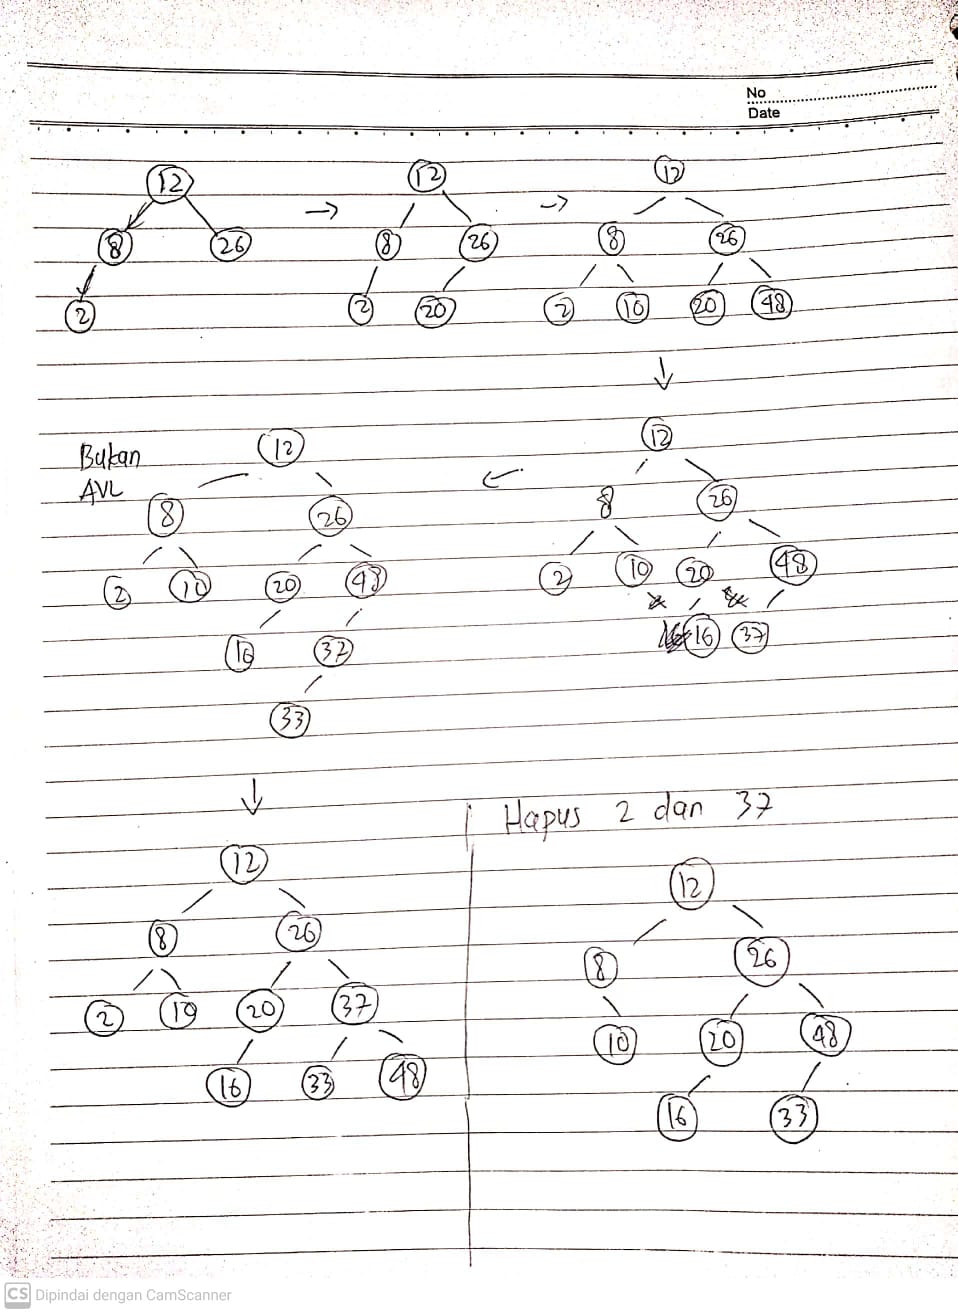 No
Date
12 12 12
8 26 → 8 26 → 8 26
2 2 20 2 10 20 48
↓
12
8 26
2 10 20 48
16 37
←
Bukan
AVL
12
8 26
2 10 20 48
16 37
33
↓
12
8 26
2 10 20 37
16 33 48
Hapus 2 dan 37
12
8 26
10 20 48
16 33
CS Dipindai dengan CamScanner